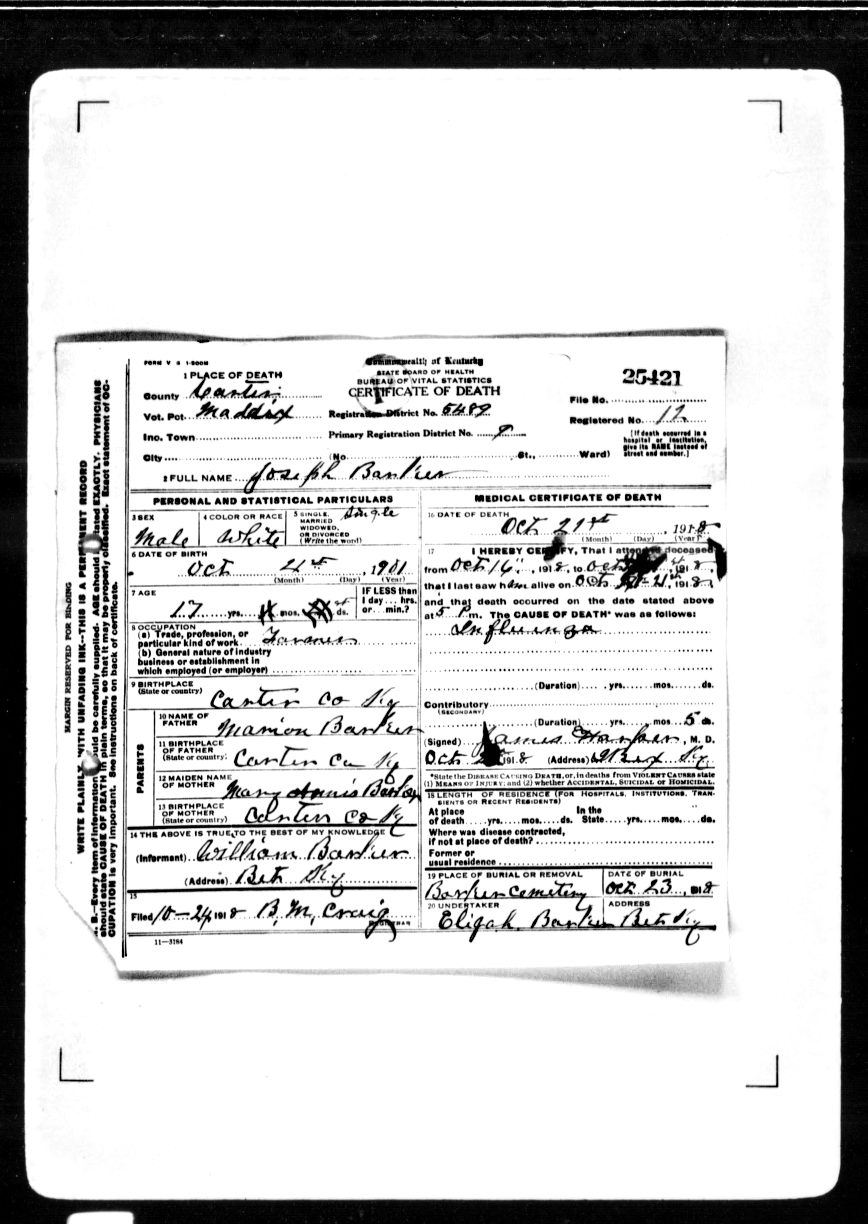 FORM V S 1-200M
Commonwealth of Kentucky
STATE BOARD OF HEALTH
BUREAU OF VITAL STATISTICS
CERTIFICATE OF DEATH
25421
1 PLACE OF DEATH
County Carter
Vot. Pct. Maddix Registration District No. 5489
File No.
Inc. Town Primary Registration District No. 9
Registered No. 12
[If death occurred in a hospital or institution, give its NAME instead of street and number.]
City (No. St., Ward)
2 FULL NAME Joseph Barker
PERSONAL AND STATISTICAL PARTICULARS
3 SEX
Male
4 COLOR OR RACE
White
5 SINGLE, MARRIED WIDOWED, OR DIVORCED (Write the word)
Single
6 DATE OF BIRTH
Oct 1901
(Month) (Day) (Year)
7 AGE
17 yrs. mos. ds.
IF LESS than 1 day... hrs. or... min.?
8 OCCUPATION
(a) Trade, profession, or particular kind of work Farmer
(b) General nature of industry
business or establishment in
which employed (or employer)
9 BIRTHPLACE
(State or country)
Carter Co Ky
PARENTS
10 NAME OF FATHER
Marion Barker
11 BIRTHPLACE OF FATHER
(State or country)
Carter Co Ky
12 MAIDEN NAME OF MOTHER
Mary Barker
13 BIRTHPLACE OF MOTHER
(State or country)
Carter Co Ky
14 THE ABOVE IS TRUE TO THE BEST OF MY KNOWLEDGE
(Informant) William Barker
(Address) Bet Ky
15
Filed 10-24 1918 B. M. Craig
REGISTRAR
11-3184
MEDICAL CERTIFICATE OF DEATH
16 DATE OF DEATH
Oct 21st, 1918
(Month) (Day) (Year)
17 I HEREBY CERTIFY, That I attended deceased
from Oct 16, 1918, to Oct, 1918,
that I last saw him alive on Oct 21, 1918,
and that death occurred on the date stated above
at 5 P m. The CAUSE OF DEATH* was as follows:
Influenza
(Duration) yrs. mos. ds.
Contributory
(SECONDARY)
(Duration) yrs. mos. 5 ds.
(Signed) James, M. D.
Oct 1918 (Address) Ky
*State the DISEASE CAUSING DEATH, or, in deaths from VIOLENT CAUSES state
(1) MEANS OF INJURY; and (2) whether ACCIDENTAL, SUICIDAL OF HOMICIDAL.
18 LENGTH OF RESIDENCE (FOR HOSPITALS, INSTITUTIONS, TRANSIENTS OR RECENT RESIDENTS)
At place of death yrs. mos. ds. In the State yrs. mos. ds.
Where was disease contracted,
if not at place of death?
Former or
usual residence
19 PLACE OF BURIAL OR REMOVAL
Barker Cemetery
DATE OF BURIAL
Oct 23, 1918
20 UNDERTAKER
ADDRESS
Elijah Barker Bet Ky
MARGIN RESERVED FOR BINDING
WRITE PLAINLY, WITH UNFADING INK--THIS IS A PERMANENT RECORD
N. B.--Every item of information should be carefully supplied. AGE should be stated EXACTLY. PHYSICIANS
should state CAUSE OF DEATH in plain terms, so that it may be properly classified. Exact statement of OC-
CUPATION is very important. See instructions on back of certificate.